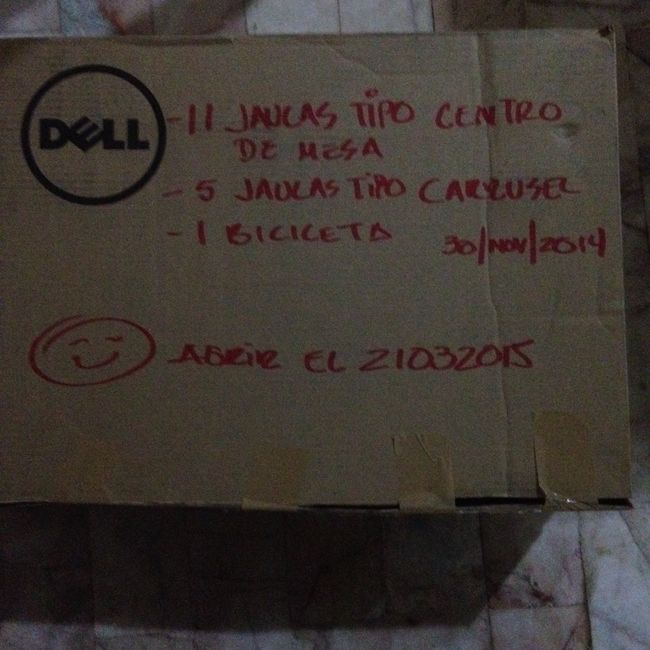 DELL
-11 JAULAS TIPO CENTRO
DE MESA
- 5 JAULAS TIPO CARRUSEL
- 1 BICICLETA
30/NOV/2014
- ABRIR EL 21032015